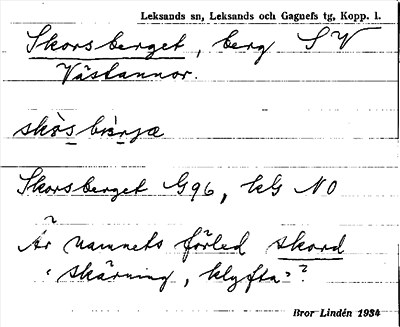 Leksands sn, Leksands och Gagnefs tg, Kopp. l.
Skorsberget, berg SV
Västannor.
skòs bɛ̀rjæ
Skorsberget G96, kG NO
Är namnets förled skord
"skärning, klyfta"?
Bror Lindén 1934